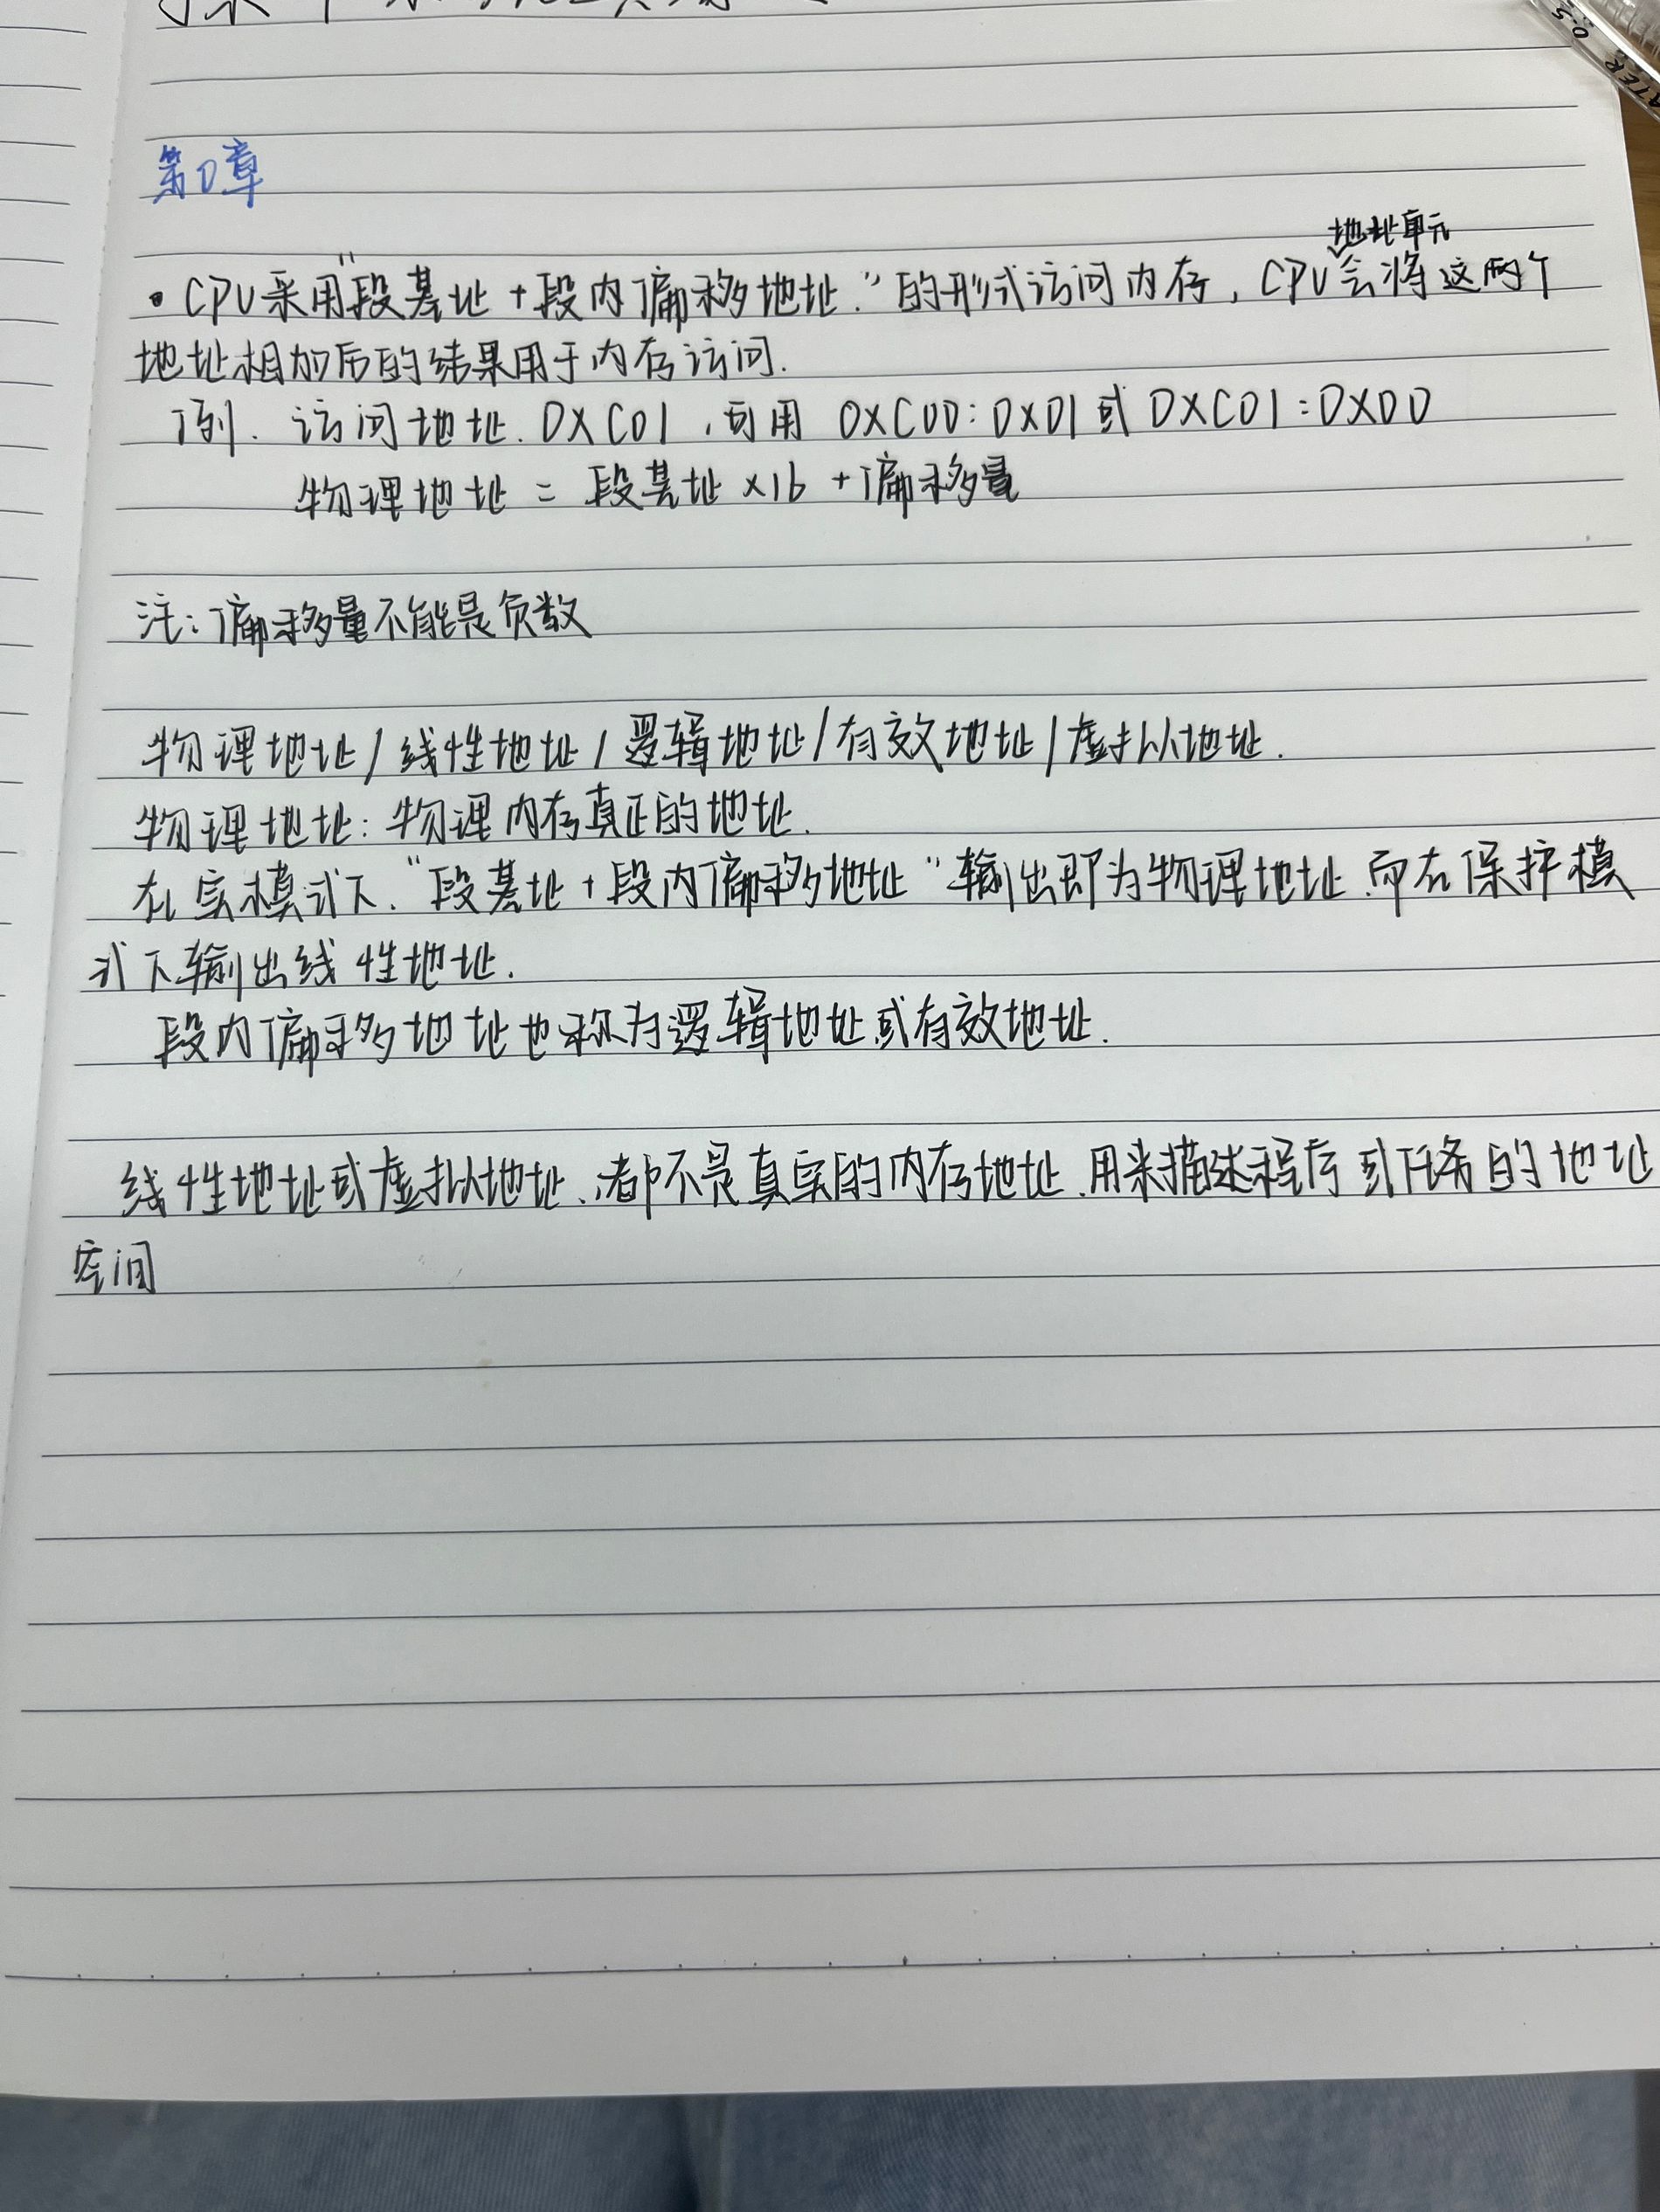 第0章
地址单元
• CPU采用"段基址+段内偏移地址."的形式访问内存，CPU会将这两个
地址相加后的结果用于内存访问.
例. 访问地址. 0XC01，可用 0XC00:0X01 或 0XC01:0X00
物理地址 = 段基址×16 + 偏移量
注:偏移量不能是负数
物理地址/线性地址/逻辑地址/有效地址/虚拟地址.
物理地址:物理内存真正的地址.
在实模式下."段基址+段内偏移地址"输出即为物理地址.而在保护模
式下输出线性地址.
段内偏移地址也称为逻辑地址或有效地址.
线性地址或虚拟地址.都不是真实的内存地址.用来描述程序或任务的地址
空间
0.5